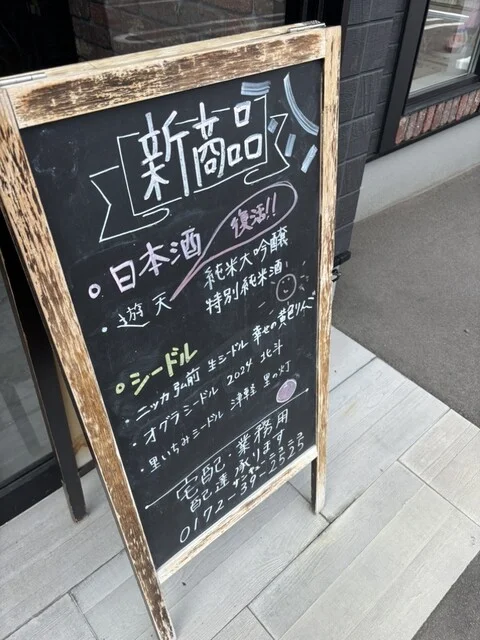 新商品
復活!!
・日本酒
・遊天 純米大吟醸
特別純米酒
・シードル
・ニッカ 弘前 生シードル 幸せの黄色りんご
・オグラシードル 2024 北斗
・里いちみシードル 津軽 里の灯
宅配・業務用
配達承ります
サンキューニコニコ
0172-39-2525